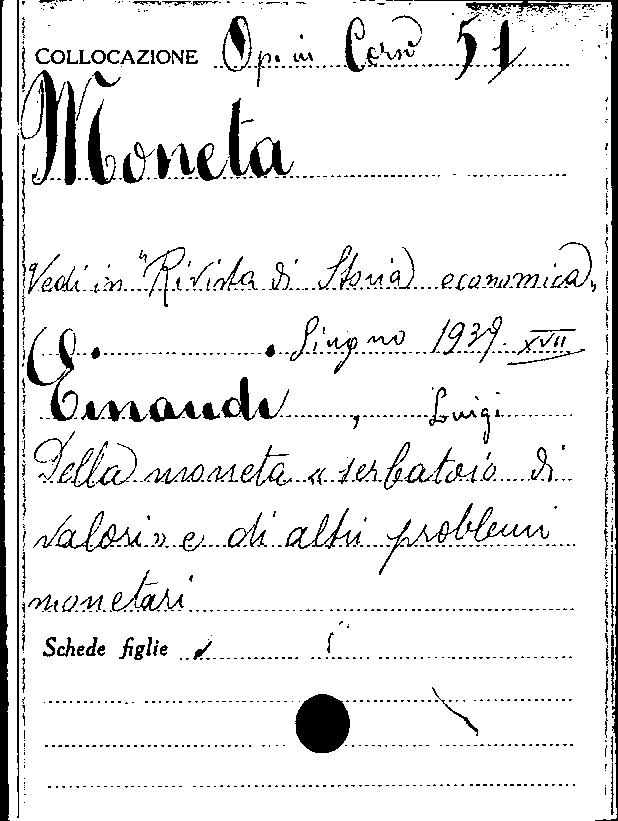 COLLOCAZIONE Op. in Corso 51
Moneta
Vedi in "Rivista di Storia economica„
Giugno 1939. XVII
Einaudi, Luigi
Della moneta « serbatoio di
valori» e di altri problemi
monetari
Schede figlie